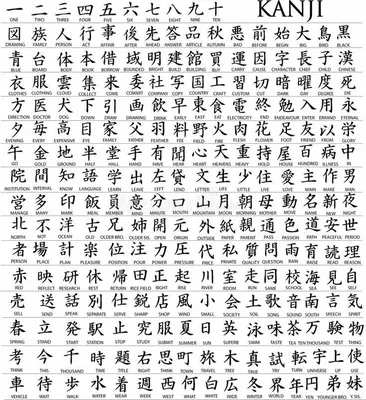 一 二 三 四 五 六 七 八 九 十 KANJI
ONE TWO THREE FOUR FIVE SIX SEVEN EIGHT NINE TEN
図 族 人 行 事 後 先 答 品 秋 悪 前 始 大 鳥 黒
DRAWING FAMILY PERSON ACT AFFAIR AFTER AHEAD ANSWER ARTICLE AUTUMN BAD BEFORE BEGIN BIG BIRD BLACK
青 台 体 本 借 域 明 建 館 買 運 因 字 長 子 漢
BLUE BODY BOOK BORROW BUILD BUILDING BUY CARRY CAUSE CHARACTER CHIEF CHILD CHINESE
衣 服 雲 集 来 委 社 写 国 工 習 切 暗 曜 度 死
CLOTHES CLOTHING CLOUD COLLECT COME COMMIT COMPANY COPY COUNTRY CRAFT CUT DARK
方 医 犬 下 引 飲 早 東 食 電 終 勉 入 用 永
DIRECTION DOCTOR DOG DOWN DRAW DRINK EARLY EAST EAT ELECTRICITY END ENDEAVOUR ENTER ETERNAL
夕 毎 高 目 家 父 羽 料 野 火 肉 花 足 友 以
EVENING EVERY EXPENSIVE EYE FAMILY FATHER FEATHER FEE FIELD FIRE FLESH FLOWER FOOT FRIEND FROM
金 地 半 堂 手 有 聞 心 天 重 持 屋 百 病 中
GO GOLD GROUND HALF HALL HAND HAVE HEAR HEART HEAVENS HEAVY HOLD HOUSE HUNDRED ILLNESS IN
院 間 知 語 学 出 左 文 生 少 住 愛 主 作 男
INSTITUTION INTERVAL KNOW LANGUAGE LEARN LEAVE LEFT LETTER LIFE LITTLE LIVE LOVE MAIN MAKE MAN
営 多 印 飯 員 意 分 口 山 月 朝 母 動 名 新 夜
MANAGE MANY MARK MEAL MEMBER MIND MINUTE MOUTH MOUNTAIN MOON MORNING MOTHER MOVE NAME NEW NIGHT
北 不 洋 古 兄 姉 開 元 外 紙 親 通 色 道 安 世
NORTH NOT OCEAN OLD OPEN ORIGIN OUTSIDE PAPER PARENT PASS PASSION PATH PEACEFUL PERIOD
者 場 計 楽 位 注 力 圧 代 私 質 問 雨 育 読 理
PERSON PLACE PLAN PLEASURE POSITION POUR POWER PRESSURE PRICE PRIVATE QUALITY QUESTION RAIN RAISE READ REASON
赤 映 研 休 帰 田 正 起 川 室 走 同 校 海 見 自
RED REFLECT RESEARCH REST RETURN RICE FIELD RIGHT RISE RIVER ROOM RUN SAME SCHOOL SEA SEE SELF
売 送 話 別 仕 鋭 店 風 小 会 土 歌 音 南 言 気
SELL SEND SPEAK SEPARATE SERVE SHARP SHOP WIND SMALL SOCIETY SOIL SONG SOUND SOUTH SAY SPIRIT
春 立 発 駅 止 究 服 夏 日 英 泳 味 茶 万 験 物
SPRING STAND START STATION STOP STUDY SUBMIT SUMMER SUN SUPERB SWIM TASTE TEA TEN THOUSAND TEST THING
考 今 千 時 題 右 思 町 旅 木 真 試 転 宇 上 使
THINK THIS THOUSAND TIME TITLE RIGHT THOUGHT TOWN TRAVEL TREE TRUE TRY TURN UNIVERSE UP USE
車 待 歩 水 着 週 西 何 白 広 冬 界 年 円 弟 妹
VEHICLE WAIT WALK WATER WEAR WEEK WEST WHAT WHITE WIDE WINTER WORLD YEAR YEN YOUNGER BRO. Y.SIS.